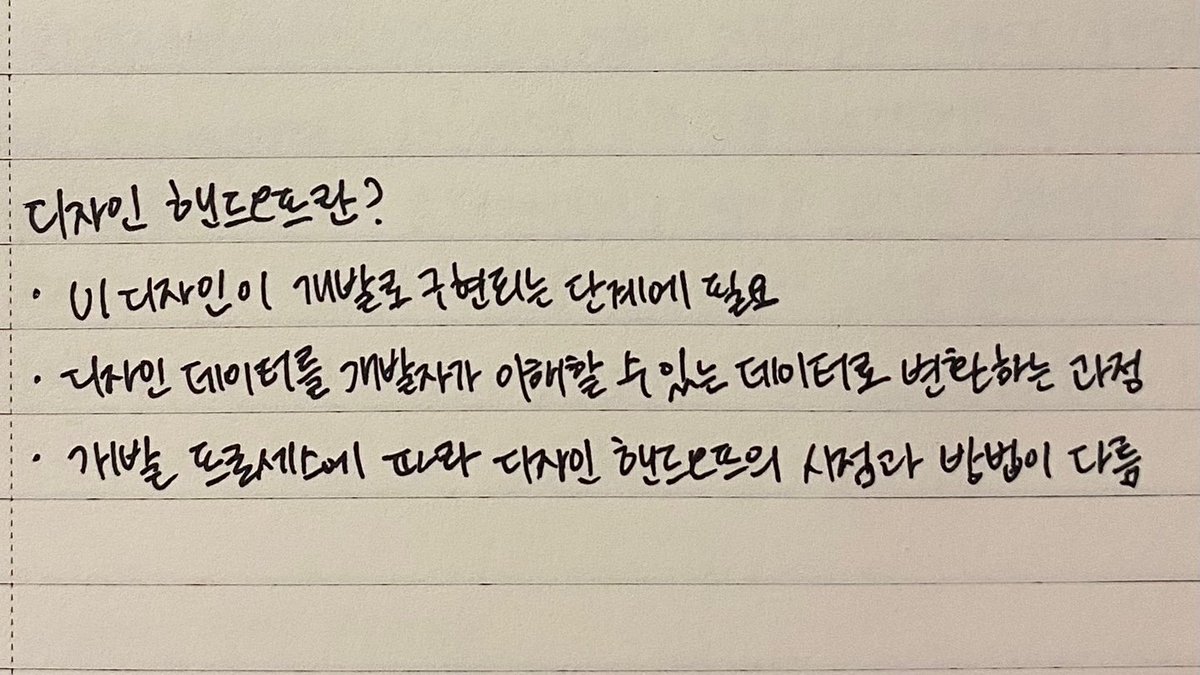 디자인 핸드오프란?
· UI 디자인이 개발로 구현되는 단계에 필요
· 디자인 데이터를 개발자가 이해할 수 있는 데이터로 변환하는 과정
· 개발 프로세스에 따라 디자인 핸드오프의 시점과 방법이 다름